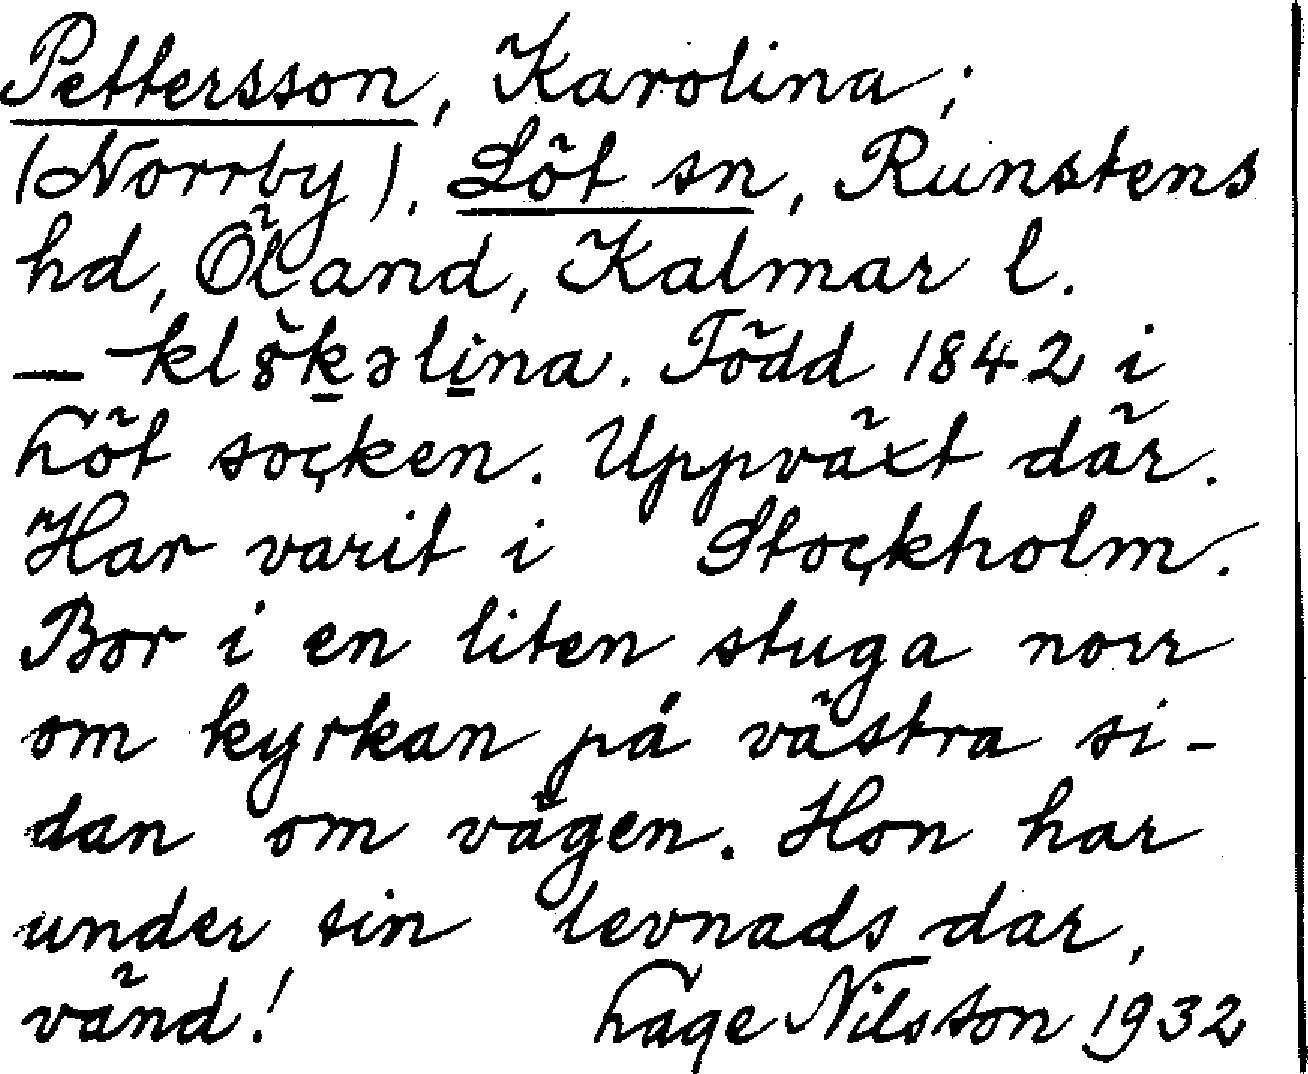 Pettersson, Karolina;
(Norrby), Löt sn, Runstens
hd, Öland, Kalmar l.
— klŏ̤kəlina. Född 1842 i
Löt socken. Uppväxt där.
Har varit i Stockholm.
Bor i en liten stuga norr
om kyrkan på västra si-
dan om vägen. Hon har
under sin levnads dar,
vänd! Lage Nilsson 1932